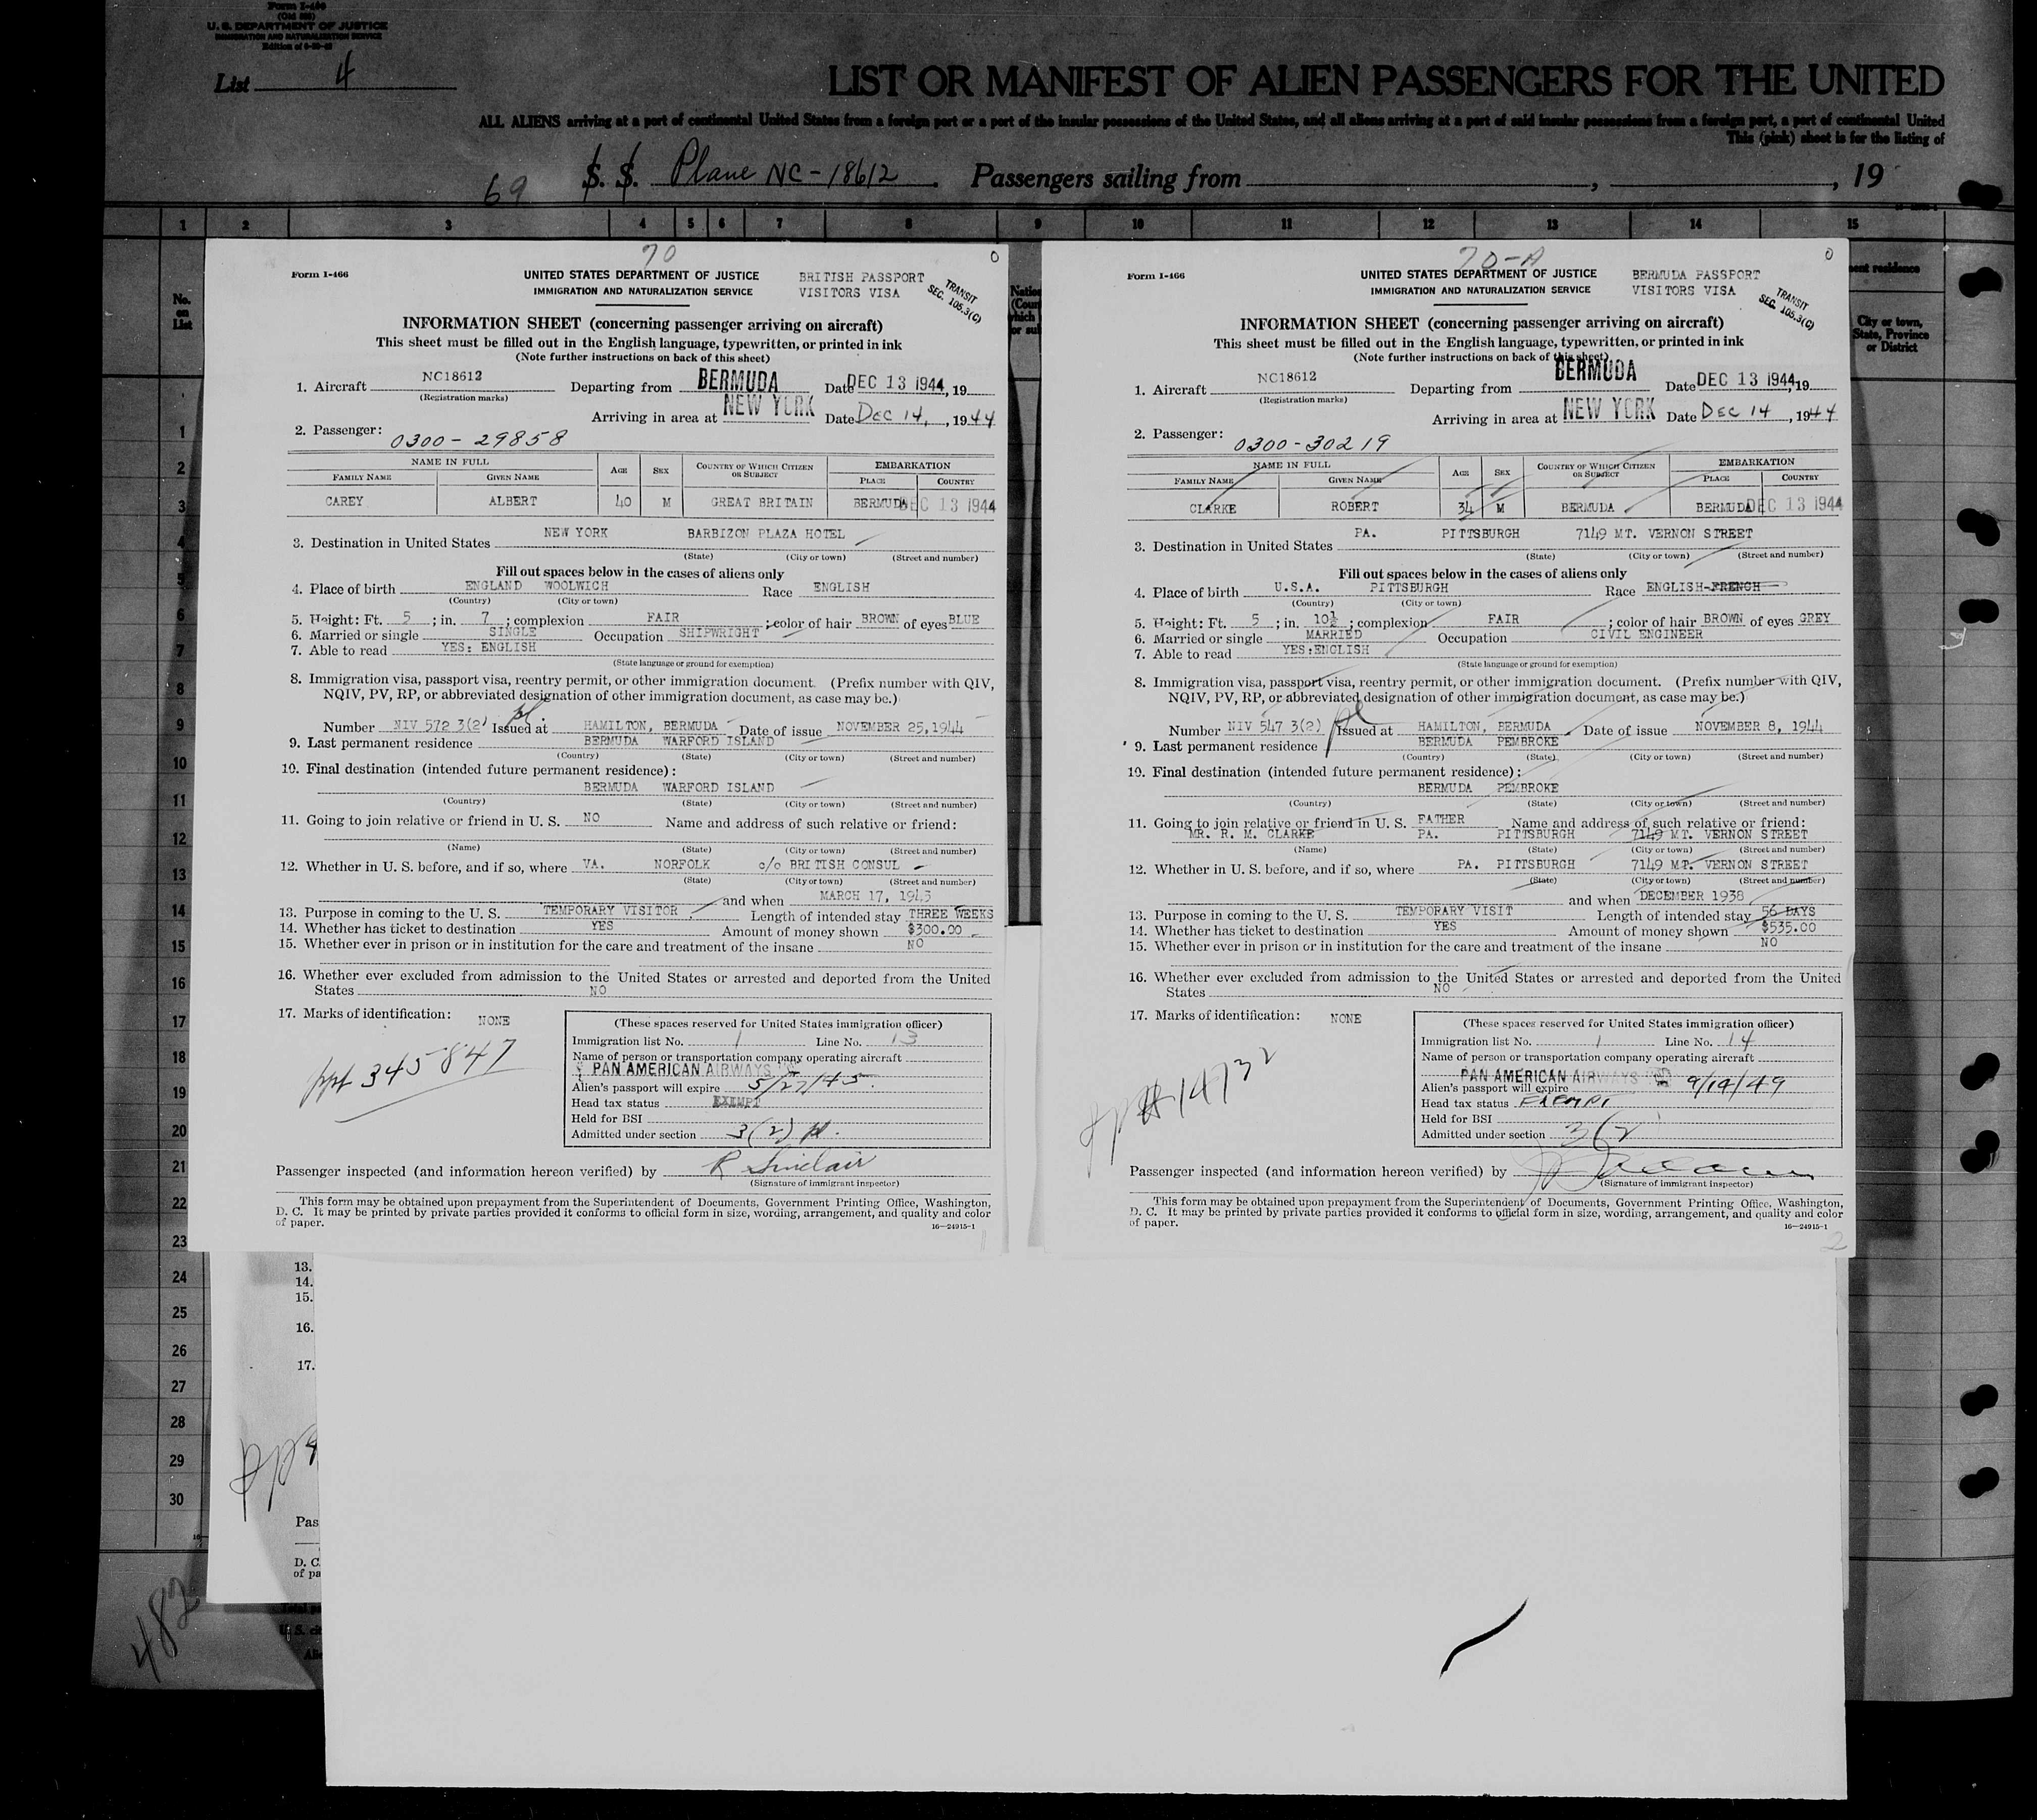 Form I-466
(Old 500)
U. S. DEPARTMENT OF JUSTICE
IMMIGRATION AND NATURALIZATION SERVICE
List 4
LIST OR MANIFEST OF ALIEN PASSENGERS FOR THE UNITED
ALL ALIENS arriving at a port of continental United States from a foreign port or a port of the insular possessions of the United States, and all aliens arriving at a port of said insular possessions from a foreign port, a port of continental United
This (pink) sheet is for the listing of
69 S. S. Plane NC-18612. Passengers sailing from , , 19
1 2 3 4 5 6 7 8 9 10 11 12 13 14 15
No. on List
City or town, State, Province or District
70
Form I-466
UNITED STATES DEPARTMENT OF JUSTICE
IMMIGRATION AND NATURALIZATION SERVICE
BRITISH PASSPORT
VISITORS VISA
TRANSIT
SEC. 105.3(C)
INFORMATION SHEET (concerning passenger arriving on aircraft)
This sheet must be filled out in the English language, typewritten, or printed in ink
(Note further instructions on back of this sheet)
1. Aircraft NC18612 Departing from BERMUDA Date DEC 13 1944, 19
(Registration marks)
Arriving in area at NEW YORK Date Dec 14, 1944
2. Passenger: 0300-29858
NAME IN FULL AGE SEX COUNTRY OF WHICH CITIZEN OR SUBJECT EMBARKATION
FAMILY NAME GIVEN NAME PLACE COUNTRY
CAREY ALBERT 40 M GREAT BRITAIN BERMUDA DEC 13 1944
3. Destination in United States NEW YORK BARBIZON PLAZA HOTEL
(State) (City or town) (Street and number)
Fill out spaces below in the cases of aliens only
4. Place of birth ENGLAND WOOLWICH Race ENGLISH
(Country) (City or town)
5. Height: Ft. 5 ; in. 7 ; complexion FAIR ; color of hair BROWN of eyes BLUE
6. Married or single SINGLE Occupation SHIPWRIGHT
7. Able to read YES: ENGLISH
(State language or ground for exemption)
8. Immigration visa, passport visa, reentry permit, or other immigration document. (Prefix number with QIV,
NQIV, PV, RP, or abbreviated designation of other immigration document, as case may be.)
Number NIV 572 3(2) Issued at HAMILTON, BERMUDA Date of issue NOVEMBER 25, 1944
9. Last permanent residence BERMUDA WARFORD ISLAND
(Country) (State) (City or town) (Street and number)
10. Final destination (intended future permanent residence):
BERMUDA WARFORD ISLAND
(Country) (State) (City or town) (Street and number)
11. Going to join relative or friend in U. S. NO Name and address of such relative or friend:
(Name) (State) (City or town) (Street and number)
12. Whether in U. S. before, and if so, where VA. NORFOLK c/o BRITISH CONSUL
(State) (City or town) (Street and number)
and when MARCH 17, 1943
13. Purpose in coming to the U. S. TEMPORARY VISITOR Length of intended stay THREE WEEKS
14. Whether has ticket to destination YES Amount of money shown $300.00
15. Whether ever in prison or in institution for the care and treatment of the insane NO
16. Whether ever excluded from admission to the United States or arrested and deported from the United
States NO
17. Marks of identification: NONE
ppt 345847
(These spaces reserved for United States immigration officer)
Immigration list No. 1 Line No. 13
Name of person or transportation company operating aircraft
PAN AMERICAN AIRWAYS
Alien's passport will expire 5/27/45.
Head tax status EXEMPT
Held for BSI
Admitted under section 3(2)
Passenger inspected (and information hereon verified) by R Sinclair
(Signature of immigrant inspector)
This form may be obtained upon prepayment from the Superintendent of Documents, Government Printing Office, Washington,
D. C. It may be printed by private parties provided it conforms to official form in size, wording, arrangement, and quality and color
of paper. 16—24915-1
70-A
Form I-466
UNITED STATES DEPARTMENT OF JUSTICE
IMMIGRATION AND NATURALIZATION SERVICE
BERMUDA PASSPORT
VISITORS VISA
TRANSIT
SEC. 105.3(C)
INFORMATION SHEET (concerning passenger arriving on aircraft)
This sheet must be filled out in the English language, typewritten, or printed in ink
(Note further instructions on back of this sheet)
1. Aircraft NC18612 Departing from BERMUDA Date DEC 13 1944, 19
(Registration marks)
Arriving in area at NEW YORK Date Dec 14, 1944
2. Passenger: 0300-30219
NAME IN FULL AGE SEX COUNTRY OF WHICH CITIZEN OR SUBJECT EMBARKATION
FAMILY NAME GIVEN NAME PLACE COUNTRY
CLARKE ROBERT 34 M BERMUDA BERMUDA DEC 13 1944
3. Destination in United States PA. PITTSBURGH 7149 MT. VERNON STREET
(State) (City or town) (Street and number)
Fill out spaces below in the cases of aliens only
4. Place of birth U.S.A. PITTSBURGH Race ENGLISH-FRENCH
(Country) (City or town)
5. Height: Ft. 5 ; in. 10½ ; complexion FAIR ; color of hair BROWN of eyes GREY
6. Married or single MARRIED Occupation CIVIL ENGINEER
7. Able to read YES:ENGLISH
(State language or ground for exemption)
8. Immigration visa, passport visa, reentry permit, or other immigration document. (Prefix number with QIV,
NQIV, PV, RP, or abbreviated designation of other immigration document, as case may be.)
Number NIV 547 3(2) Issued at HAMILTON, BERMUDA Date of issue NOVEMBER 8, 1944
9. Last permanent residence BERMUDA PEMBROKE
(Country) (State) (City or town) (Street and number)
10. Final destination (intended future permanent residence):
BERMUDA PEMBROKE
(Country) (State) (City or town) (Street and number)
11. Going to join relative or friend in U. S. FATHER Name and address of such relative or friend:
MR. R. M. CLARKE PA. PITTSBURGH 7149 MT. VERNON STREET
(Name) (State) (City or town) (Street and number)
12. Whether in U. S. before, and if so, where PA. PITTSBURGH 7149 MT. VERNON STREET
(State) (City or town) (Street and number)
and when DECEMBER 1938
13. Purpose in coming to the U. S. TEMPORARY VISIT Length of intended stay 56 DAYS
14. Whether has ticket to destination YES Amount of money shown $535.00
15. Whether ever in prison or in institution for the care and treatment of the insane NO
16. Whether ever excluded from admission to the United States or arrested and deported from the United
States NO
17. Marks of identification: NONE
14732
(These spaces reserved for United States immigration officer)
Immigration list No. 1 Line No. 14
Name of person or transportation company operating aircraft
PAN AMERICAN AIRWAYS
Alien's passport will expire 9/14/49
Head tax status EXEMPT
Held for BSI
Admitted under section 3(2
Passenger inspected (and information hereon verified) by
(Signature of immigrant inspector)
This form may be obtained upon prepayment from the Superintendent of Documents, Government Printing Office, Washington,
D. C. It may be printed by private parties provided it conforms to official form in size, wording, arrangement, and quality and color
of paper. 16—24915-1
2
1
2
3
4
5
6
7
8
9
10
11
12
13
14
15
16
17
18
19
20
21
22
23
24
25
26
27
28
29
30
13.
14.
15.
16.
17.
Pas
D. C.
of pa
482